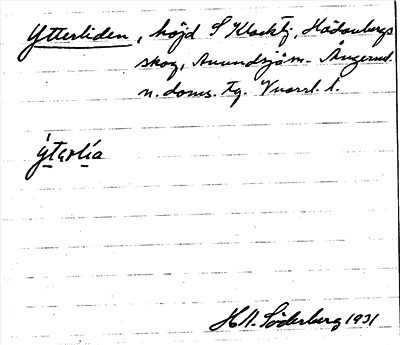 Ytterliden, höjd S Klocktj, Hädanbergs
skog, Anundsjö sn. Ångerml.
n. doms. tg. Vnorrl. l.
ýtərlía
H A. Söderberg 1931